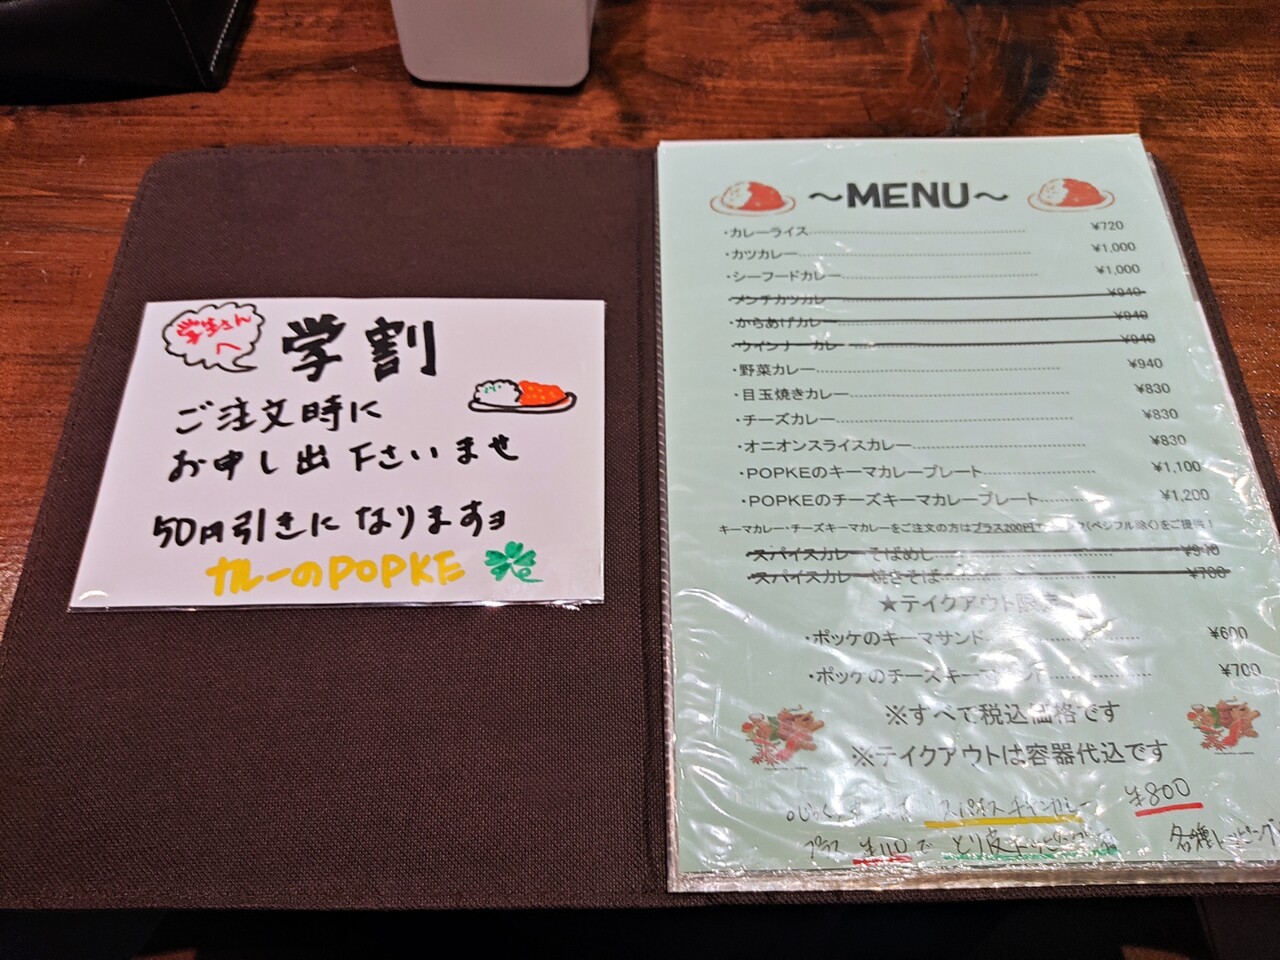 学生さんへ
学割
ご注文時に
お申し出下さいませ
50円引きになりますヨ
カレーのPOPKE
～MENU～
・カレーライス ¥720
・カツカレー ¥1,000
・シーフードカレー ¥1,000
・メンチカツカレー ¥940
・からあげカレー ¥940
・ウインナーカレー ¥940
・野菜カレー ¥940
・目玉焼きカレー ¥830
・チーズカレー ¥830
・オニオンスライスカレー ¥830
・POPKEのキーマカレープレート ¥1,100
・POPKEのチーズキーマカレープレート ¥1,200
キーマカレー・チーズキーマカレーをご注文の方はプラス200円で (ペシフル除く)をご提供！
・スパイスカレーそばめし ¥940
・スパイスカレー焼きそば ¥700
★テイクアウト限定
・ポッケのキーマサンド ¥600
・ポッケのチーズキーマサンド ¥700
※すべて税込価格です
※テイクアウトは容器代込です
スパイスチキンカレー ¥800
プラス ¥110で とり皮トッピング
各種トッピング